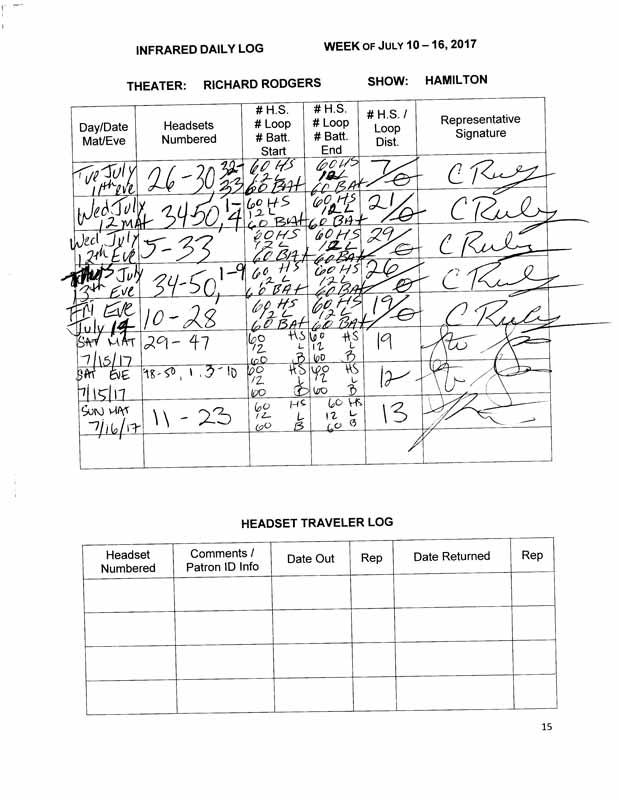 INFRARED DAILY LOG WEEK OF JULY 10 – 16, 2017
THEATER: RICHARD RODGERS SHOW: HAMILTON
Day/Date
Mat/Eve
Headsets
Numbered
# H.S.
# Loop
# Batt.
Start
# H.S.
# Loop
# Batt.
End
# H.S. /
Loop
Dist.
Representative
Signature
Tue July
11th eve
26-30
32-
33
60 HS
12 L
60 BAT
60 HS
12 L
60 BAT
7/0
C Ruly
Wed July
12 MAT
34-50, 1-
4
60 HS
12 L
60 BAT
60 HS
12 L
60 BAT
21/0
C Ruly
Wed July
12th Eve
5-33
60 HS
12 L
60 BAT
60 HS
12 L
60 BAT
29/0
C Ruly
Thurs July
13th Eve
34-50, 1-9
60 HS
12 L
60 BAT
60 HS
12 L
60 BAT
26/0
C Ruly
Fri Eve
July 14
10-28
60 HS
12 L
60 BAT
60 HS
12 L
60 BAT
19/0
C Ruly
SAT MAT
7/15/17
29-47
60 HS
12 L
60 B
60 HS
12 L
60 B
19
SAT EVE
7/15/17
48-50, 1, 3-10
60 HS
12 L
60 B
60 HS
12 L
60 B
12
SUN MAT
7/16/17
11-23
60 HS
12 L
60 B
60 HS
12 L
60 B
13
HEADSET TRAVELER LOG
Headset
Numbered
Comments /
Patron ID Info
Date Out
Rep
Date Returned
Rep
15